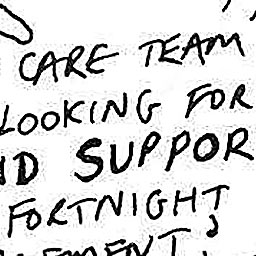 CARE TEAM
LOOKING FOR
ND SUPPOR
FORTNIGHT